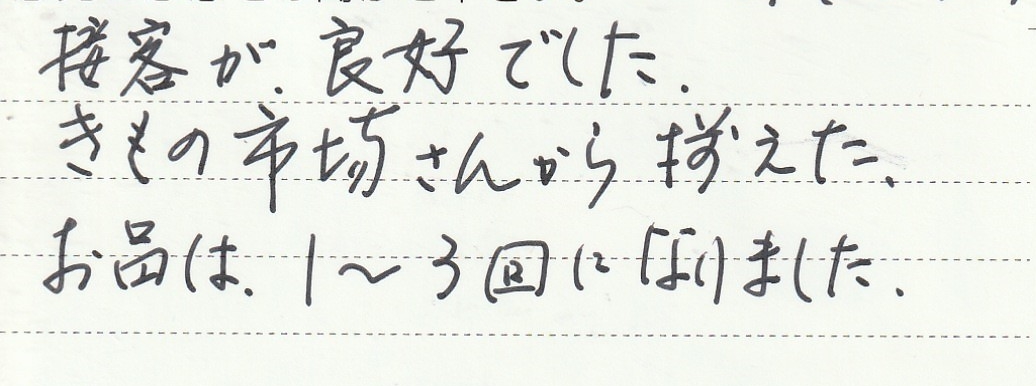 接客が、良好でした。
きもの市場さんから揃えた、
お品は、1〜3回になりました。